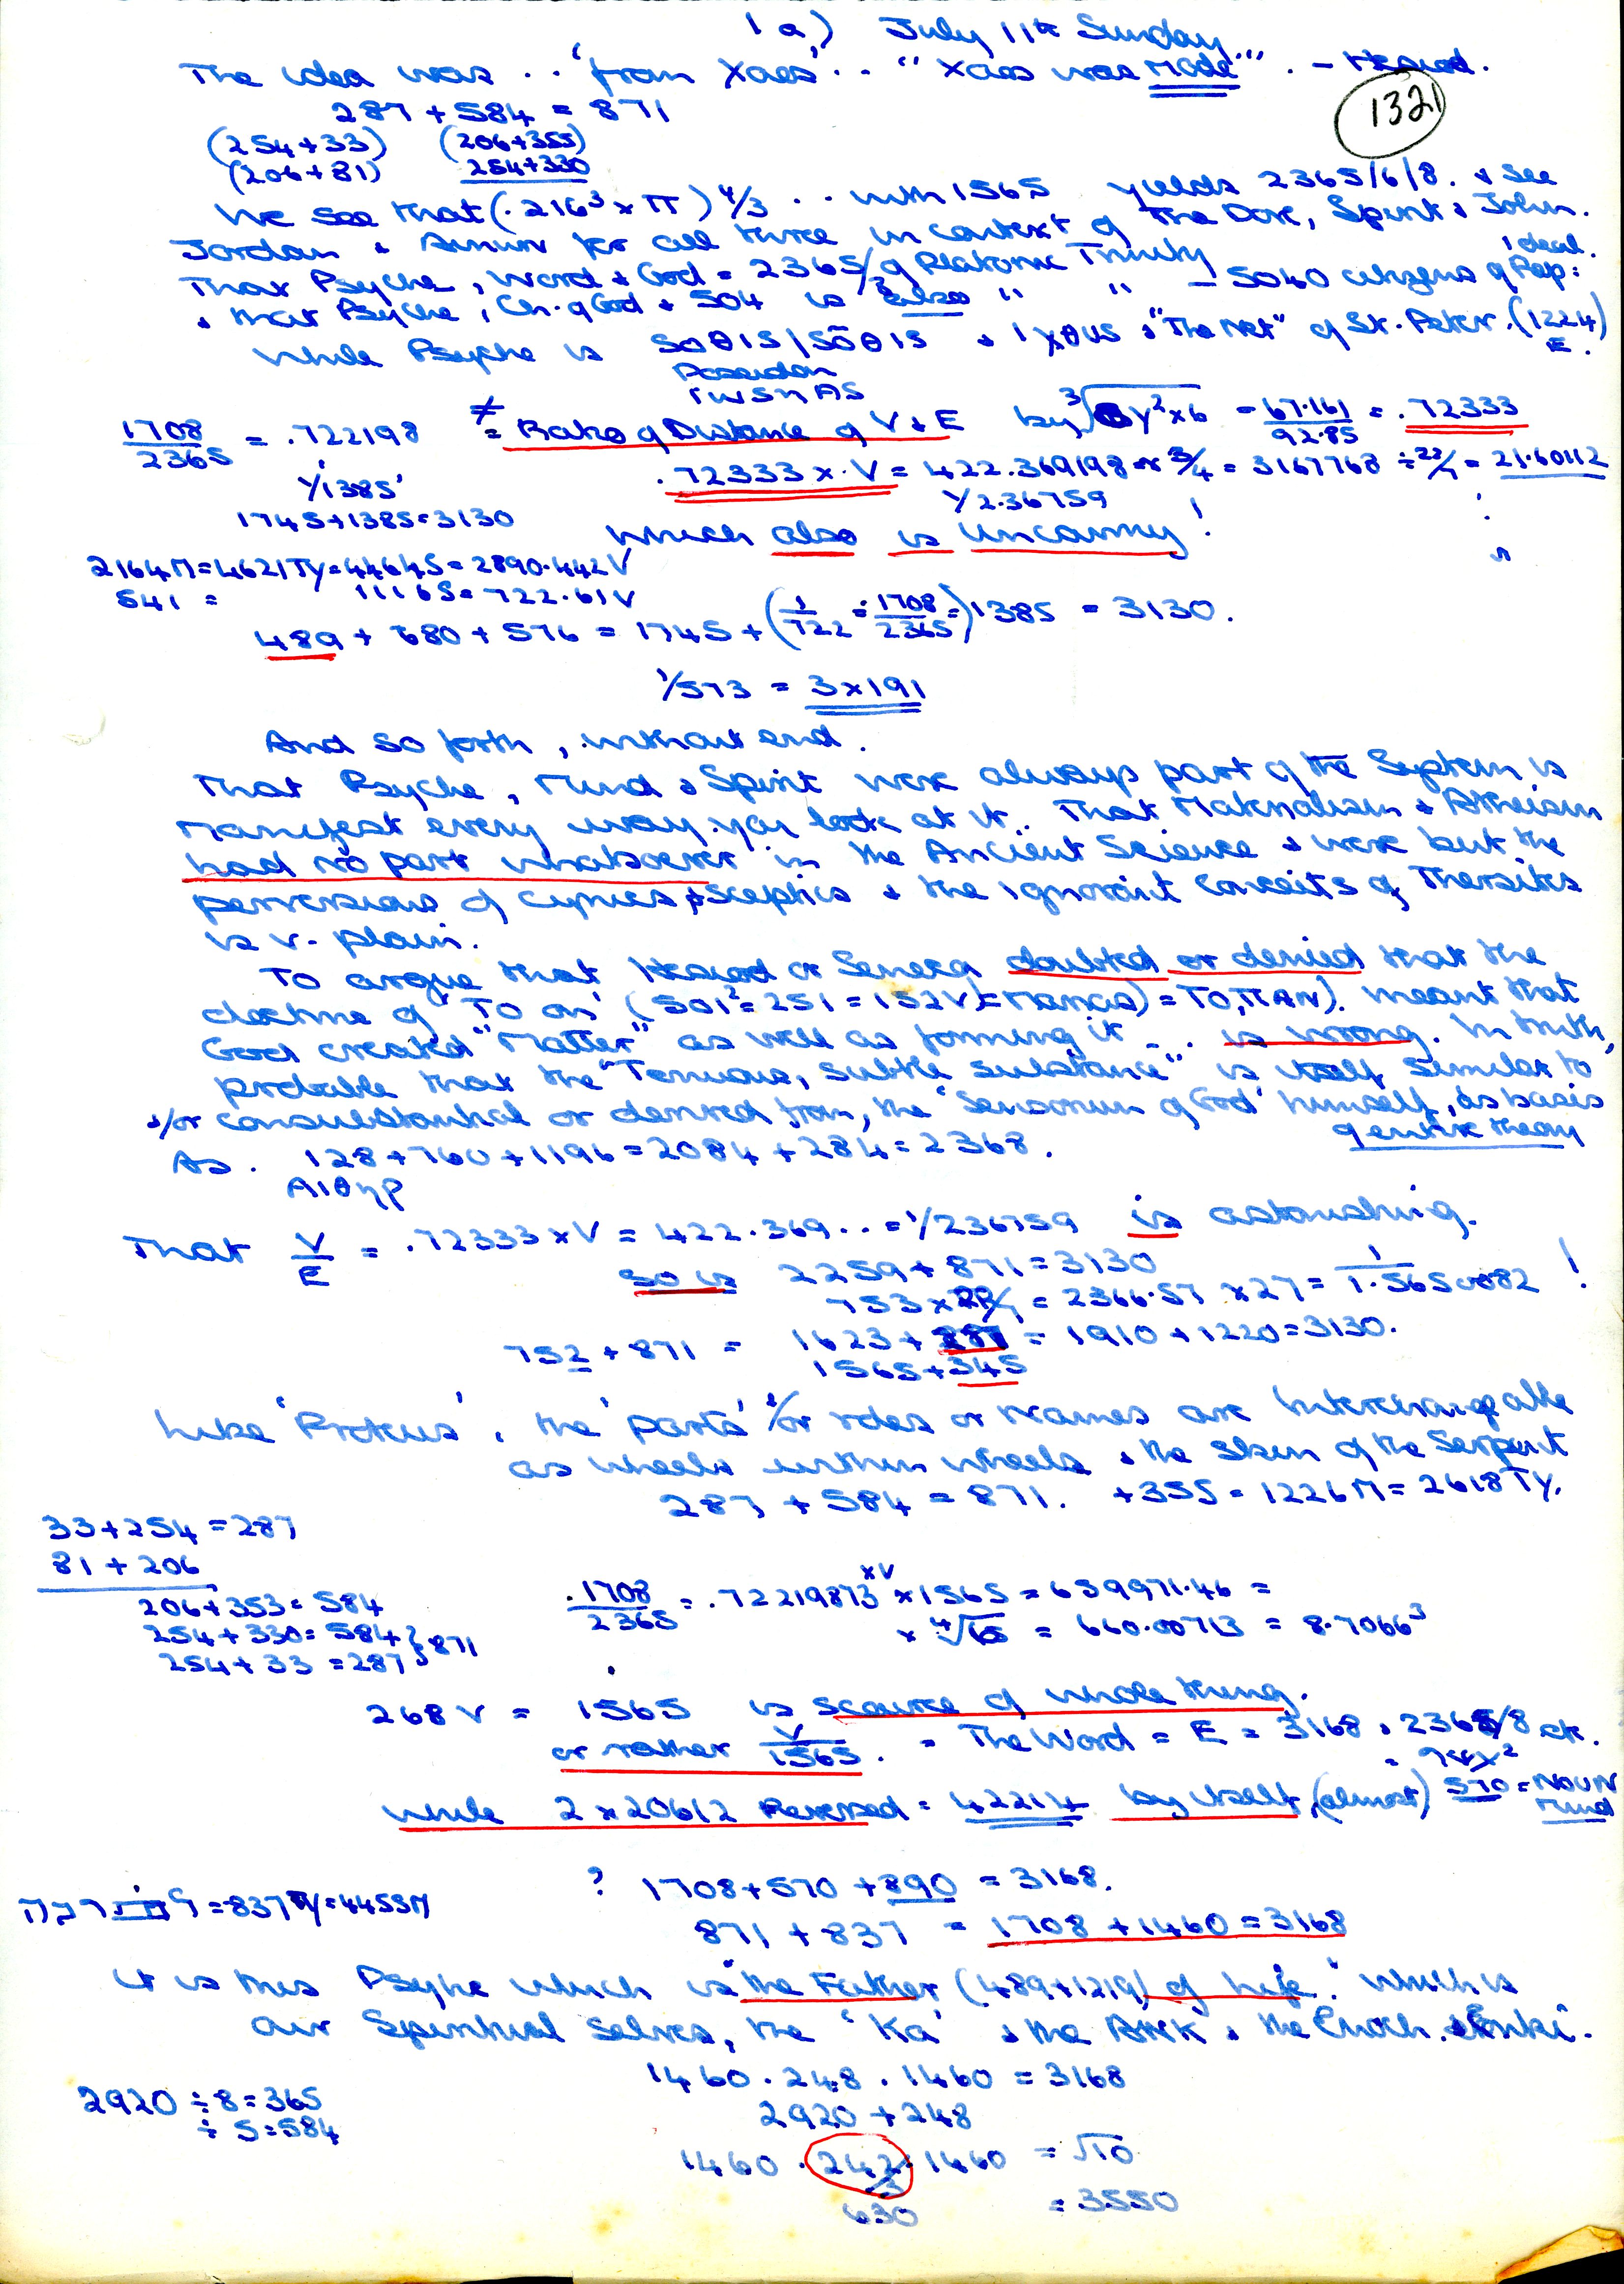 1 a) July 11th Sunday
The idea was .. 'from Xaos' .. "Xaos was Made" . - Hesiod.
1321
287 + 584 = 871
(254+33) (206+353)
(206+81) 254+330
We see that (.216³ x π) 4/3 .. with 1565 yields 2365/6/8. & see
Jordan & Amun for all three in context of The Dove, Spirit & John.
That Psyche, Word & God = 2365/8 of Platonic Trinity - 5040 citizens of ideal Rep:
& that Psyche, Ch. of God & 504 is also " "
while Psyche is SOθIS / SŌθIS & IXθUS & "The Net" of St. Peter. (1224)
E.
Poseidon
1708/2365 = .722198 ≠ = Ratio of Distance of V & E by = 67.161/92.85 = .72333
1/1385
.72333 x .V = 422.369198 x 3/4 = 3167768 ÷ 22/7 = 21.60112
1/2.36759
1745+1385=3130
which also is Uncanny !
2164M=4621Ty=44645=2890.442V
541 = 11165=722.61V
489 + 680 + 576 = 1745 + (1/722 = 1708/2365 =) 1385 = 3130.
1/573 = 3x191
And so forth, without end.
That Psyche, Mind & Spirit were always part of the System is
manifest every way you look at it. That Materialism & Atheism
had no part whatsoever in the Ancient Science & were but the
perversions of cynics & sceptics & the ignorant conceits of Thersites
is v. plain.
To argue that Hesiod or Seneca doubted or denied that the
doctrine of 'To on' (501²=251=152V)=Mancia)=TO,ΠAN). meant that
God created "Matter" as well as forming it ... is wrong. In truth,
probable that the "Tenuous, Subtle Substance" is itself similar to
&/or consubstantial or derived from, the 'Sensorium of God' himself, as basis
of entire theory
As. 128+760+1196=2084+284=2368.
AIθηρ
That V/E = .72333 x V = 422.369.. = 1/236759 is astounding.
so is 2259 + 871 = 3130
753 x 22/7 = 2366.57 x 27 = 1/1.5650082 !
752 + 871 = 1623 + 287 = 1910 + 1220=3130.
1565+345
Like 'Proteus', the 'parts' &/or roles or Names are Interchangeable
as wheels within wheels & the skin of the Serpent
287 + 584 = 871. +355 = 1226M = 2618Ty.
33+254=287
81 + 206
206+353=584
254+330=584 } 871
254+33=287
.1708/2365 = .72219873 xV x 1565 = 639971.46 =
x = 660.00713 = 8.7066³
268V = 1565 is source of whole thing.
or rather V/1565 . = The Word = E = 3168 , 2368/8 etc.
= 74x²
while 2 x 20612 Reversed = 42214 by itself, (almost) 570 = NOUN
Mind
? 1708+570+890 = 3168.
=837Ty=4453M
871 + 837 = 1708 + 1460=3168
It is this Psyche which is "the Father (489+1219) of Life." which is
our Spiritual Selves, the 'Ka' & the ANK, & the Enoch, & Enki.
1460 . 248 . 1460 = 3168
2920 + 248
2920 ÷ 8=365
÷ 5=584
1460 . 242 . 1460 = √10
630 = 3550